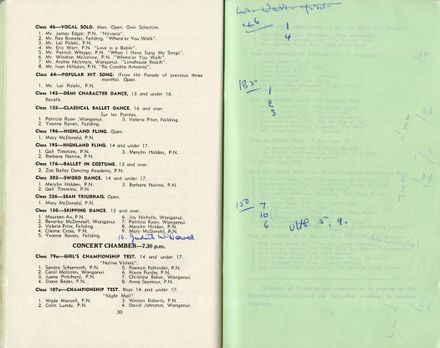 Class 46—VOCAL SOLO. Men. Open. Own Selection.
1. Mr. James Edgar, P.N. "Nirvana"
2. Mr. Rex Bowater, Feilding. "Where'er You Walk".
3. Mr. Loi Poleki, P.N.
4. Mr. Eric Warr, P.N. "Love is a Bable".
5. Mr. Patrick Whippy, P.N. "When I Have Sung My Songs".
6. Mr. Winston McIntosh, P.N. "Where'er You Walk".
7. Mr. Archie McIntyre, Wanganui. "Limehouse Reach".
8. Mr. Ivan Hillsdon, P.N. "Per Condita Armonia"
Class 64—POPULAR HIT SONG: (From Hit Parade of previous three
months). Open.
1. Mr. Loi Poleki, P.N.
Class 142—DEMI CHARACTER DANCE, 13 and under 16.
Recalls.
Class 135—CLASSICAL BALLET DANCE. 16 and over.
Sur les Pointes.
1. Patricia Ryan, Wanganui. 3. Valerie Prior, Feilding.
2. Yvonne Raven, Feilding.
Class 196—HIGHLAND FLING. Open.
1. Mary McDonald, P.N.
Class 195—HIGHLAND FLING. 14 and under 17.
1. Gail Timmins, P.N. 3. Merylin Holden, P.N.
2. Barbara Nairne, P.N.
Class 176—BALLET IN COSTUME. 13 and over.
1. Zoe Bailey Dancing Academy, P.N.
Class 202—SWORD DANCE. 14 and under 17.
1. Merylin Holden, P.N. 3. Barbara Nairne, P.N.
2. Gail Timmins, P.N.
Class 226—SEAN TRIUBHAIS. Open.
1. Mary McDonald, P.N.
Class 150—SKIPPING DANCE. 13 and over.
1. Maureen Ax, P.N. 6. Joy Nicholls, Wanganui.
2. Beverley McDonnell, Wanganui. 7. Patricia Ryan, Wanganui.
3. Valerie Prior, Feilding. 8. Merylin Holden, P.N.
4. Cleone Cross, P.N. 9. Mary McDonald, P.N.
5. Yvonne Raven, Feilding 10. Judith
CONCERT CHAMBER—7.30 p.m.
Class 79a—GIRL'S CHAMPIONSHIP TEST. 14 and under 17.
"Native Violets".
1. Sandra Schamroth, P.N. 5. Raewyn Falkinder, P.N.
2. Carol Malcolm, Wanganui. 6. Royce Purdie, P.N.
3. Juene Pritchard, P.N. 7. Christine Baker, Wanganui.
4. Diane Beder, P.N. 8. Anne Seymour, P.N.
Class 107a—CHAMPIONSHIP TEST. Boys 14 and under 17.
"Night Mail"
1. Wade Mansell, P.N. 3. Winton Roberts, P.N.
2. Colin Lundy, P.N. 4. David Johnston, Wanganui.
30
46 1
4
135 1
2
3
150 7
10
6 VHC 5, 9.